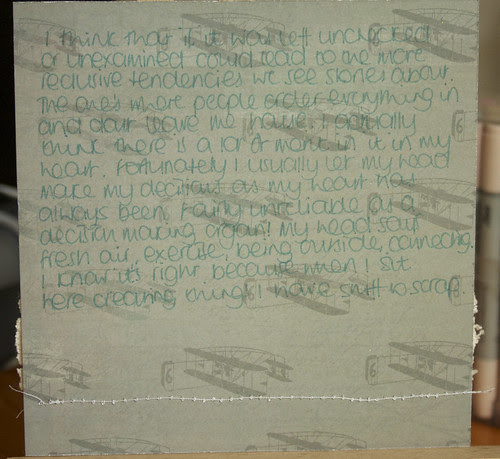 I think that if it was left unchecked
or unexamined could lead to the more
reclusive tendencies we see stories about.
The ones where people order everything in
and don't leave the house. I actually
think there is a lot of merit in it in my
heart. Fortunately I usually let my head
make my decisions as my heart has
always been fairly unreliable as a
decision making organ! My head says
fresh air, exercise, being outside, connecting.
I know its right because when I sit
here creating things I have stuff to scrap.
6
6
6
6